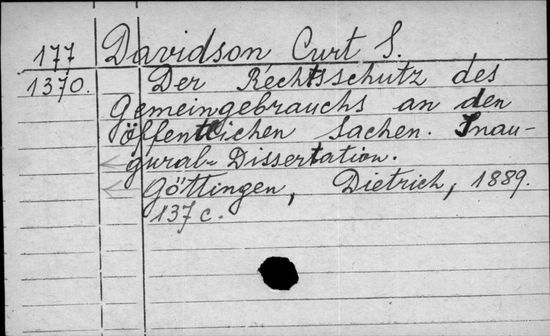 177 Davidson, Curt S.
1370. Der Rechtsschutz des
Gemeingebrauchs an den
öffentlichen Sachen. Inau-
gural-Dissertation.
Göttingen, Dietrich, 1889.
137 c.